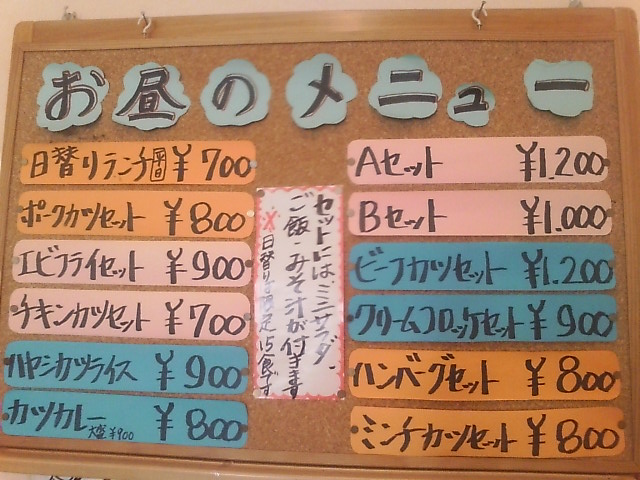 お昼のメニュー
日替りランチ 平日 ¥700
ポークカツセット ¥800
エビフライセット ¥900
チキンカツセット ¥700
ハヤシカツライス ¥900
カツカレー ¥800
大盛¥900
セットにはミニサラダ、
ご飯・みそ汁が付きます
※日替りは限定15食です
Aセット ¥1.200
Bセット ¥1.000
ビーフカツセット ¥1.200
クリームコロッケセット ¥900
ハンバーグセット ¥800
ミンチカツセット ¥800